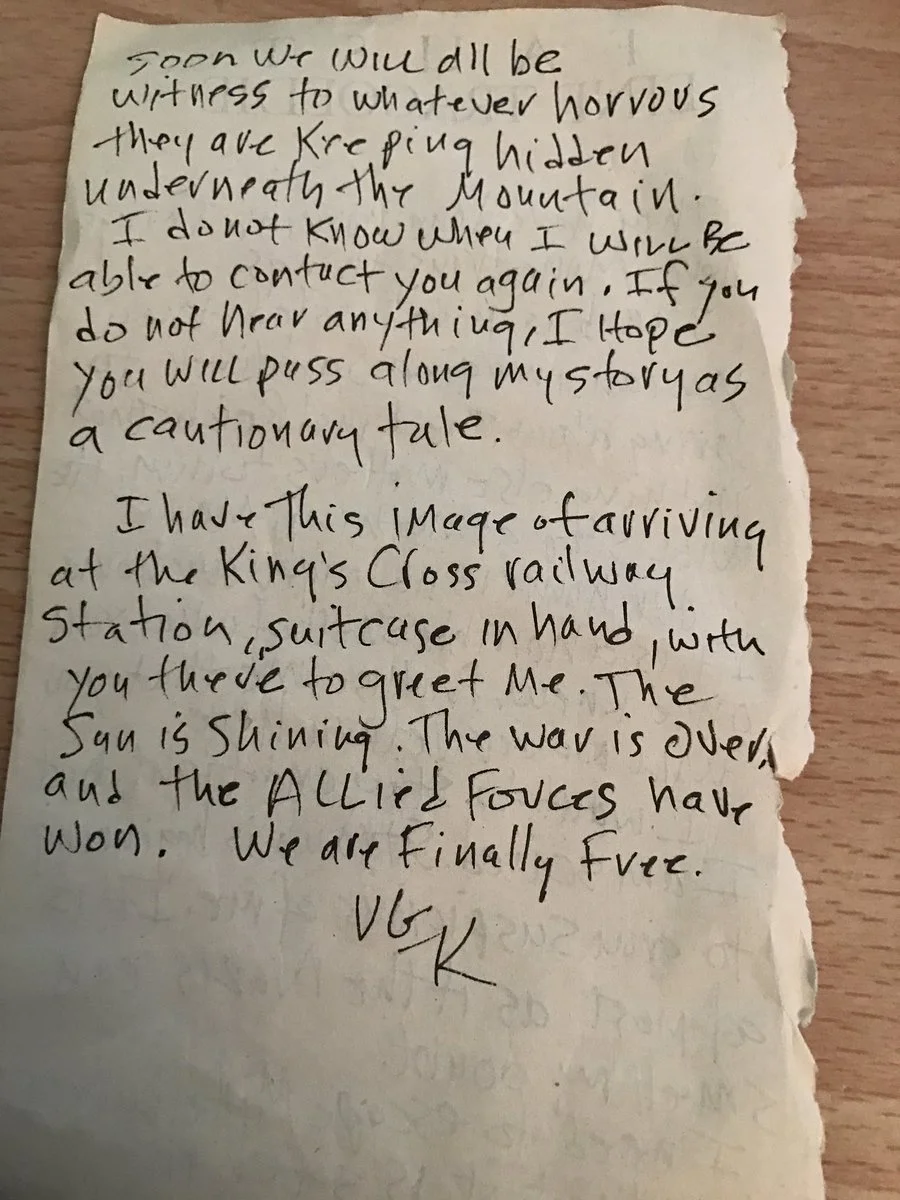 soon we will all be
witness to whatever horrors
they are keeping hidden
underneath the Mountain.
I do not know when I will Be
able to contact you again. If you
do not hear anything, I Hope
you will pass along my story as
a cautionary tale.
I have This image of arriving
at the King's Cross railway
Station, suitcase in hand, with
you there to greet Me. The
Sun is Shining. The war is over,
and the Allied Forces have
won. We are Finally Free.
VGK